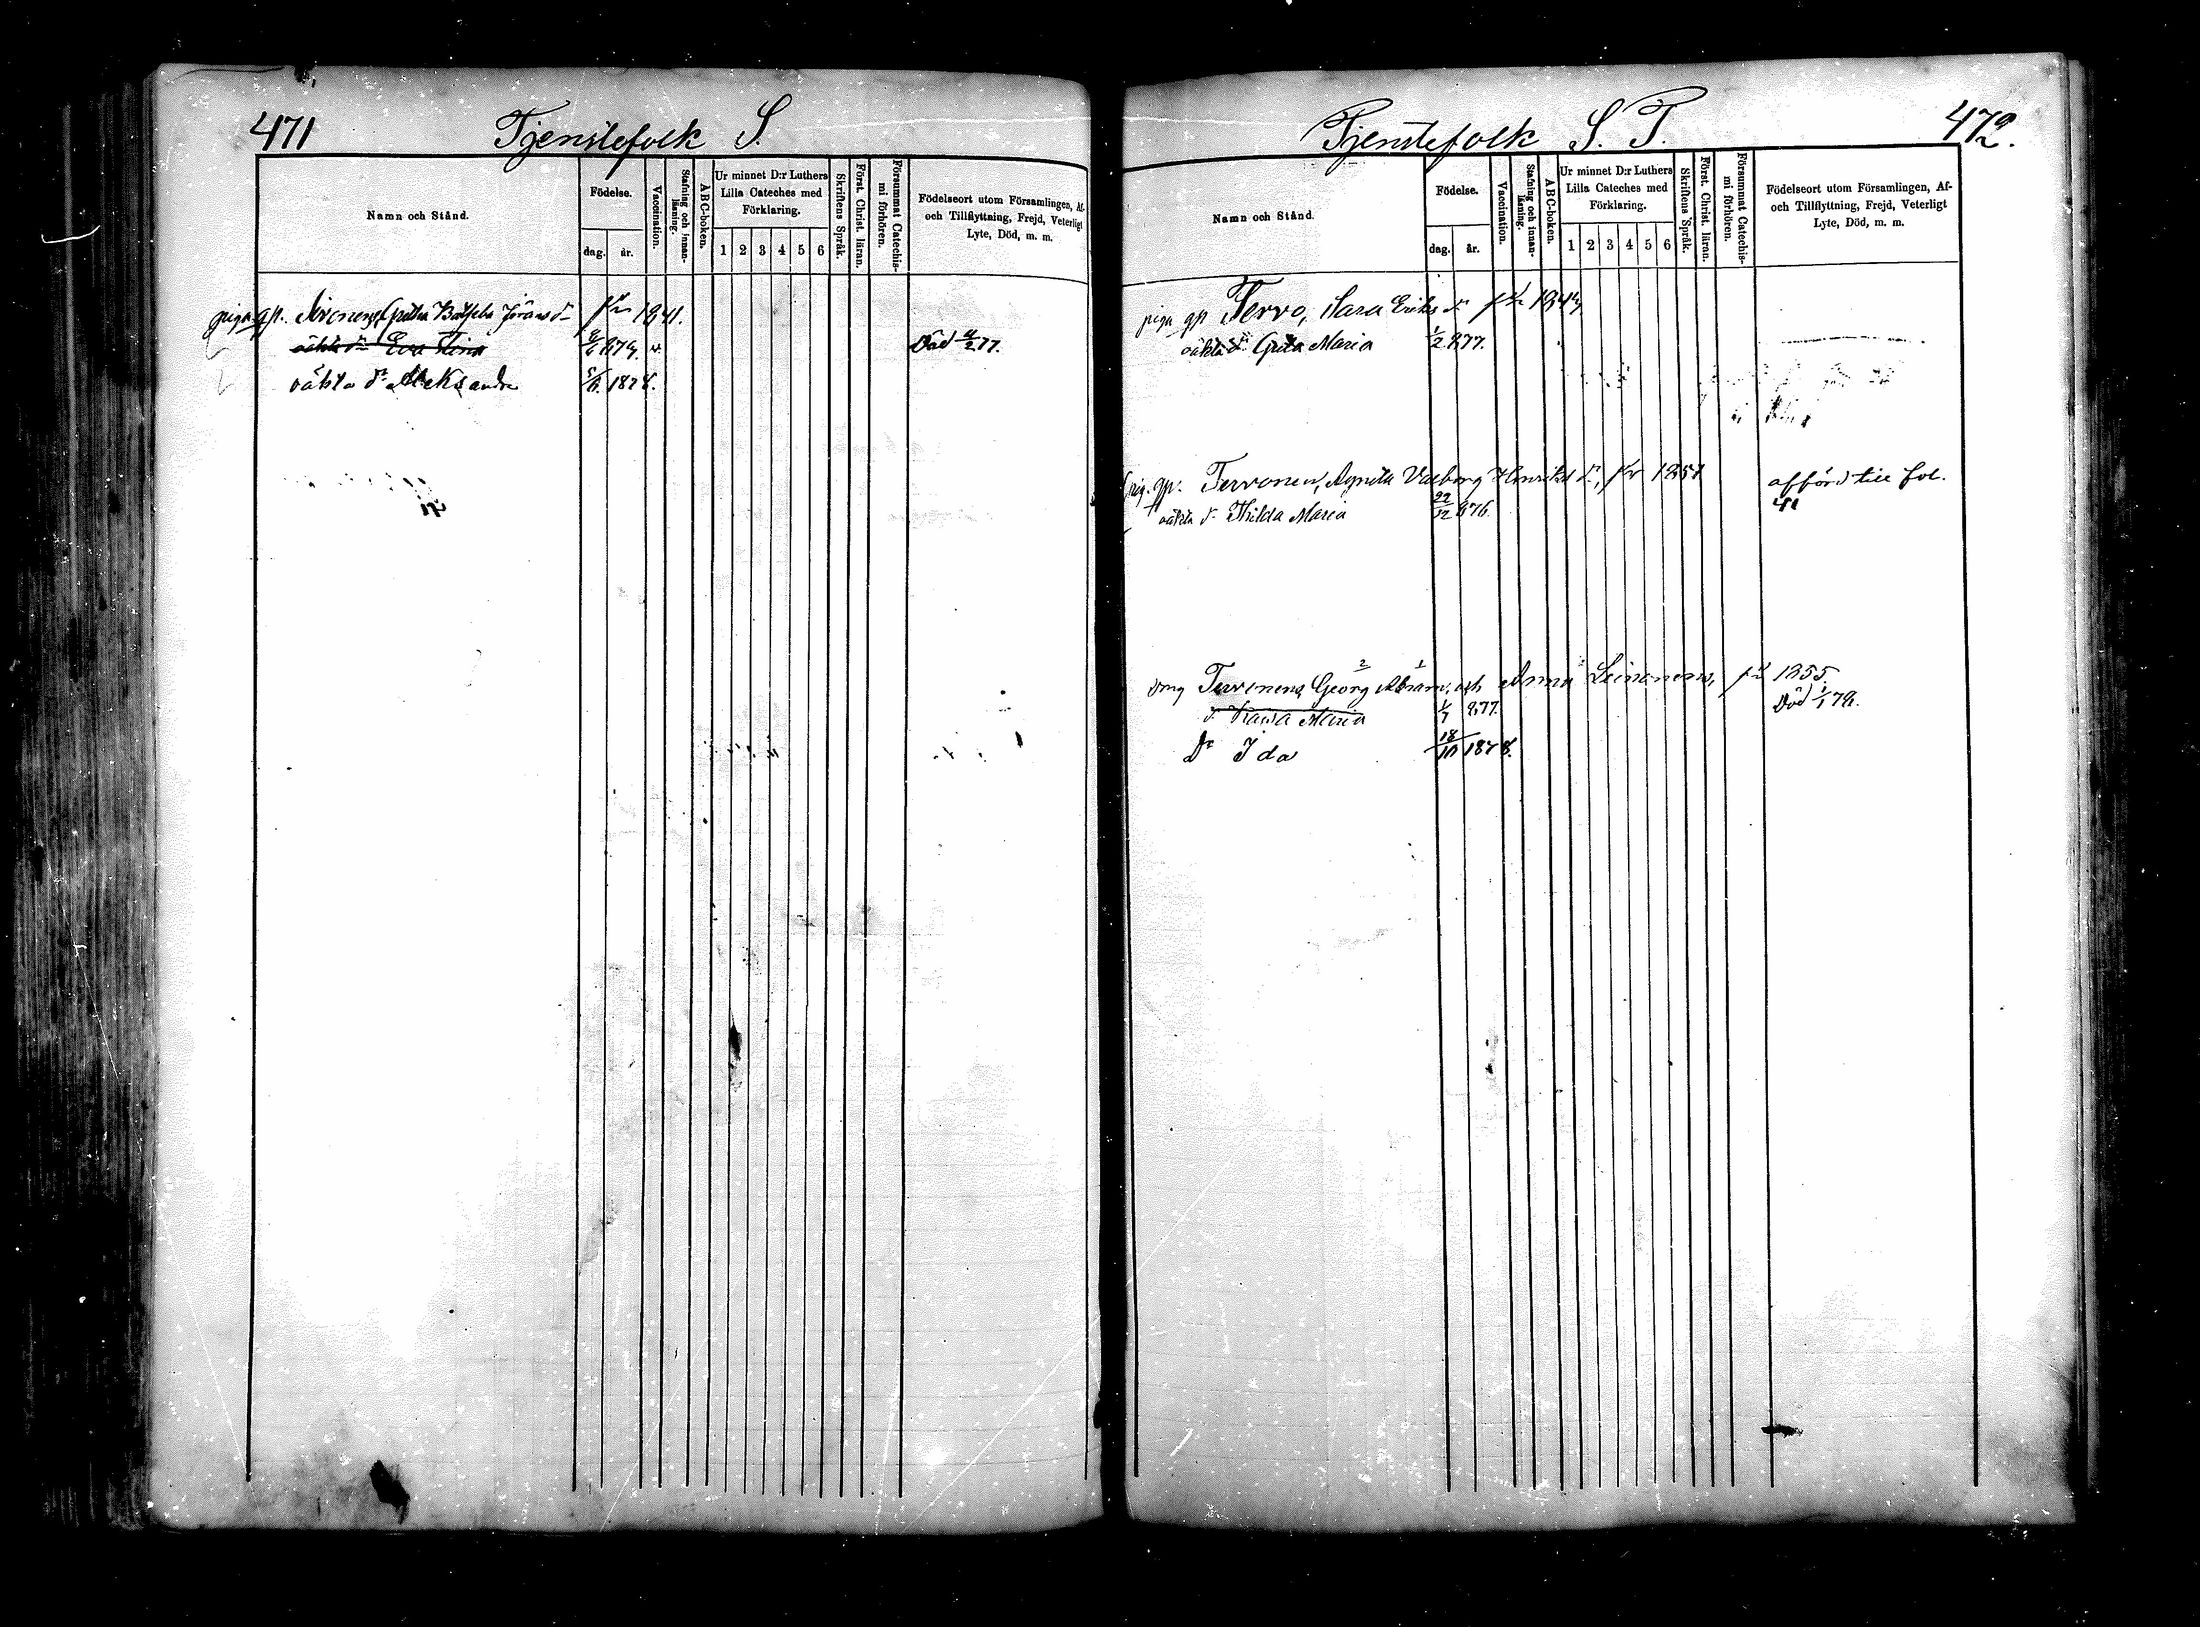 471
Tjenstefolk S.
Namn och Stånd.
Födelse.
dag.
år.
Vaccination.
Stafning och innan-
läsning.
ABC-boken.
Ur minnet D:r Luthers
Lilla Cateches med
Förklaring.
1 2 3 4 5 6
Skriftens Språk.
Först. Christ. läran.
Försummat Catechis-
mi förhören.
Födelseort utom Församlingen, Af-
och Tillflyttning, Frejd, Veterligt
Lyte, Död, m. m.
piga gp. Greta 1841.
oäkta dr Eva Stina 874. Död 4/2 77.
oäkta dr Aleksandra 1878.
Tjenstefolk S. T.
472.
Namn och Stånd.
Födelse.
dag.
år.
Vaccination.
Stafning och innan-
läsning.
ABC-boken.
Ur minnet D:r Luthers
Lilla Cateches med
Förklaring.
1 2 3 4 5 6
Skriftens Språk.
Först. Christ. läran.
Försummat Catechis-
mi förhören.
Födelseort utom Församlingen, Af-
och Tillflyttning, Frejd, Veterligt
Lyte, Död, m. m.
piga gp Tervo, Sara Eriks dr
oäkta dr Greta Maria 1/2 877.
gp. Tervonen, Agneta Valborg Henriks dr, 1851 afförd till fol.
oäkta dr Hilda Maria 22/12 876. 41
Tervonens Georg Abram. och Anna Leinonens, 1855.
dr Kaisa Maria 877. Död 79.
dr Ida 18/10 1878.